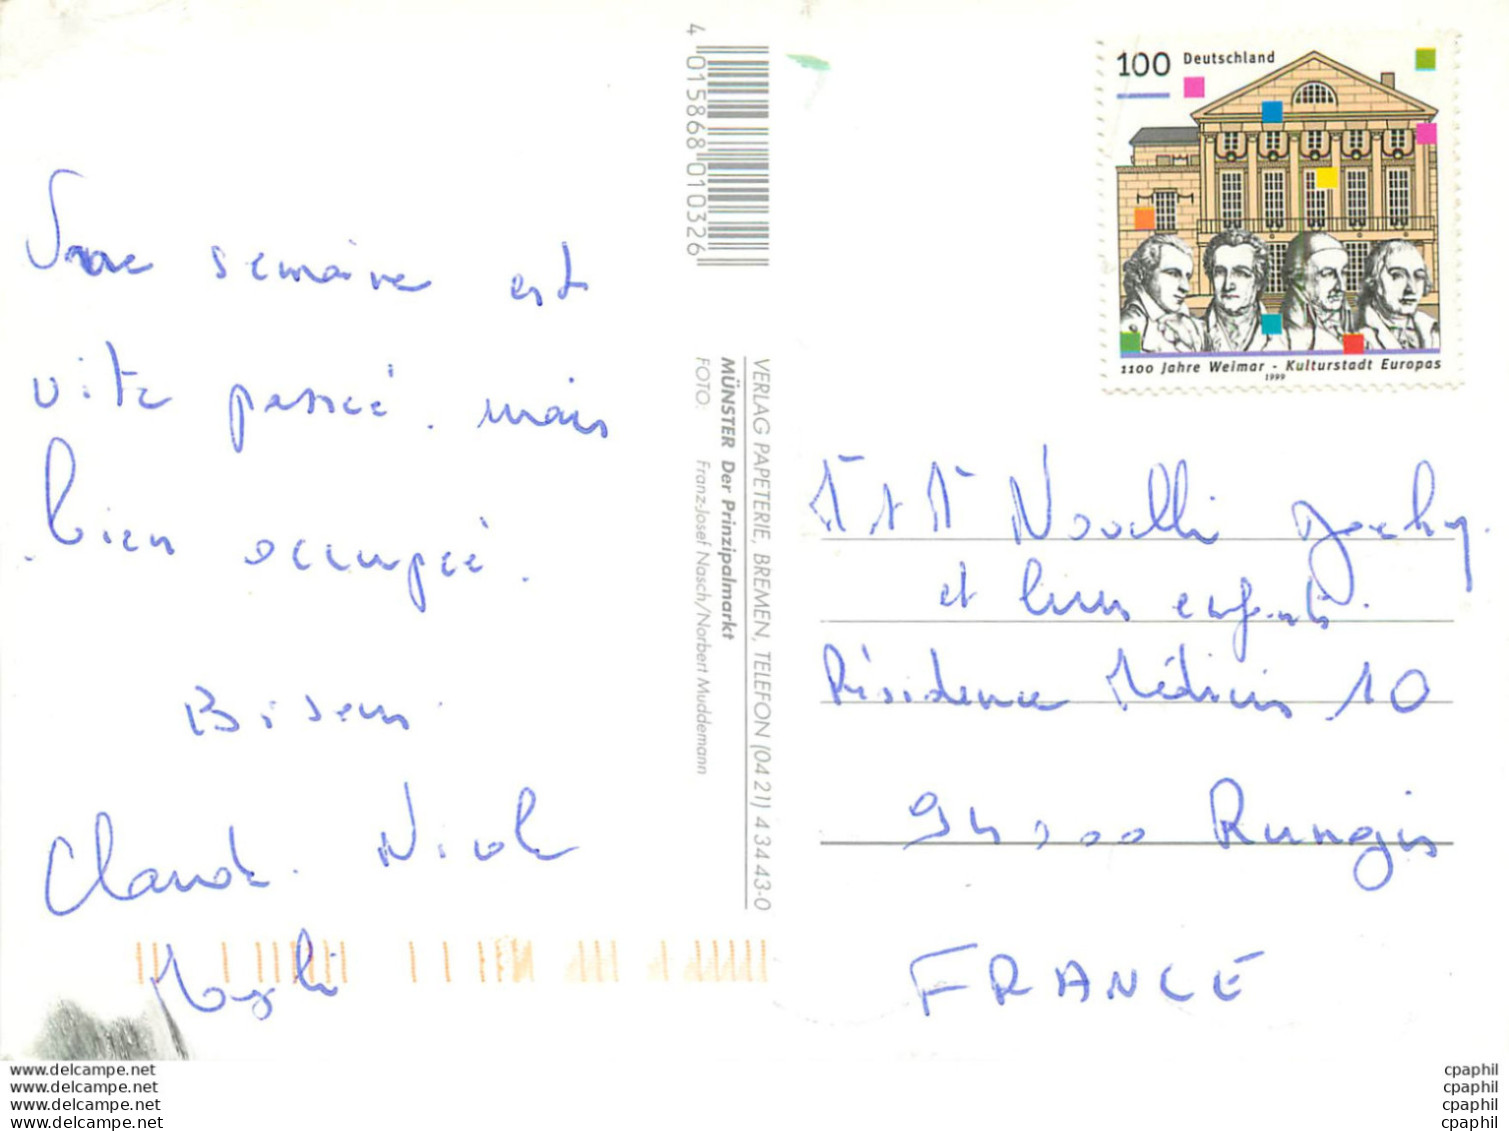 Une semaine est
vite passée. mais
bien occupée.
Bisous.
Claude. Nicole
4 015868 010326
VERLAG PAPETERIE, BREMEN, TELEFON (04 21) 4 34 43-0
MÜNSTER Der Prinzipalmarkt
FOTO: Franz-Josef Nasch/Norbert Muddemann
100 Deutschland
1100 Jahre Weimar - Kulturstadt Europas
1999
Novelli
et leurs enfants.
Résidence Médicis 10
Rungis
FRANCE
www.delcampe.net
www.delcampe.net
www.delcampe.net
www.delcampe.net
cpaphil
cpaphil
cpaphil
cpaphil